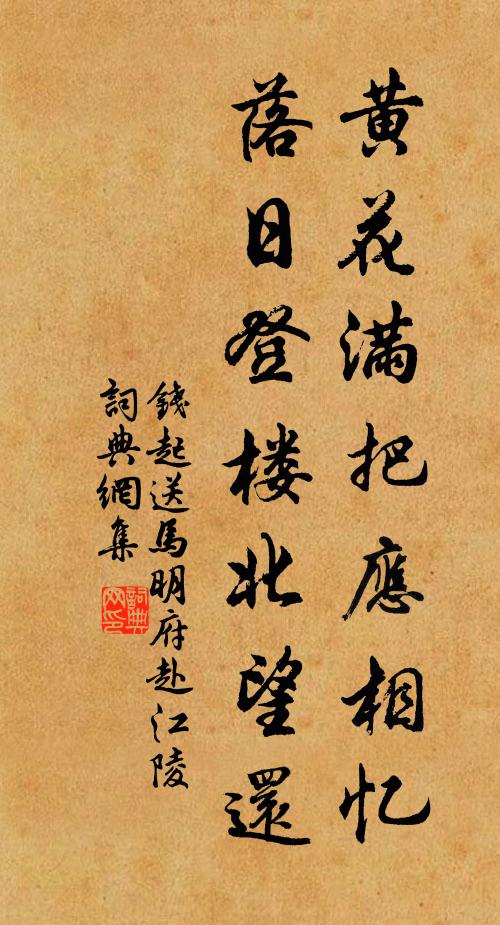 黄花满把應相忆
落日登楼北望還
錢起送馬明府赴江陵
詞典網集
詞典网印